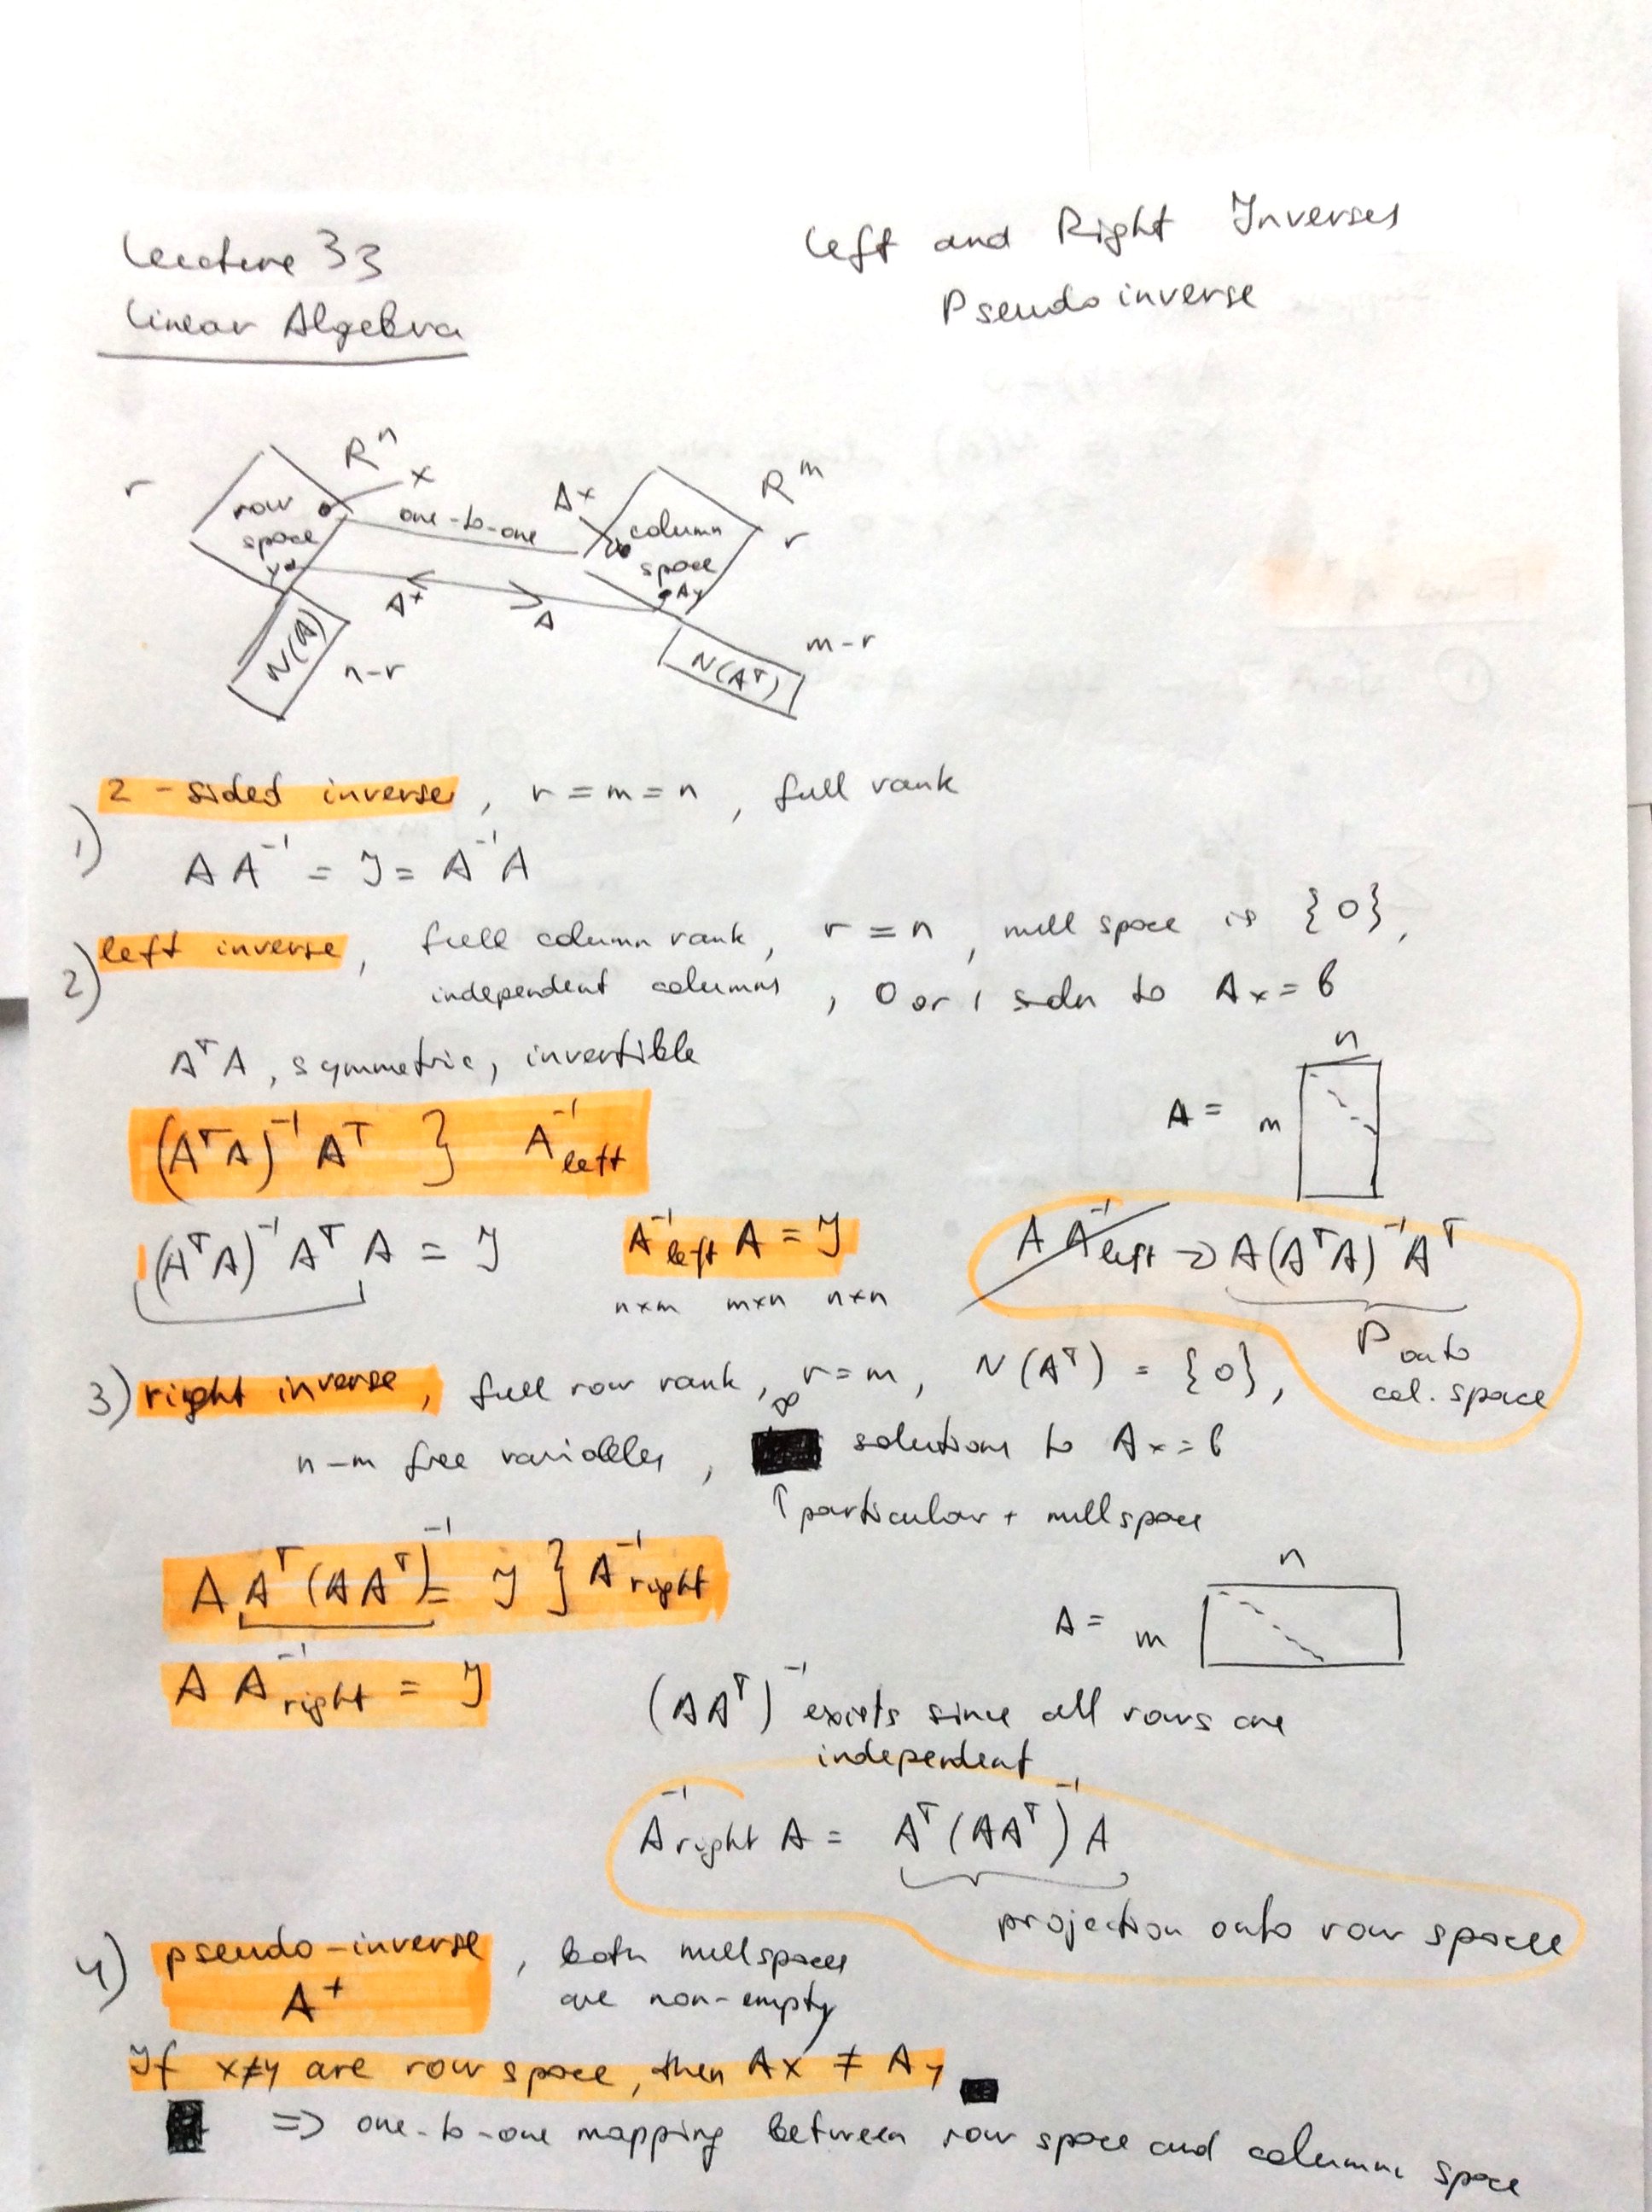 Lecture 33
Linear Algebra
Left and Right Inverses
Pseudo inverse
r
Rⁿ
x
row space
one-to-one
Ax
Rᵐ
column space
r
y
Ay
A⁺
A
N(A)
n-r
N(Aᵀ)
m-r
1) 2-sided inverse, r = m = n, full rank
A A⁻¹ = I = A⁻¹ A
2) left inverse, full column rank, r = n, null space is {0},
independent columns, 0 or 1 soln to Ax = b
AᵀA, symmetric, invertible
n
A = m
(AᵀA)⁻¹ Aᵀ } A⁻¹left
(AᵀA)⁻¹ Aᵀ A = I
A⁻¹left A = I
n×m m×n n×n
A A⁻¹left → A(AᵀA)⁻¹Aᵀ
P onto
col. space
3) right inverse, full row rank, r = m, N(Aᵀ) = {0},
n-m free variables, ∞ solutions to Ax = b
↑ particular + nullspace
A Aᵀ(AAᵀ)⁻¹ = I } A⁻¹right
n
A = m
A A⁻¹right = I
(AAᵀ)⁻¹ exists since all rows are
independent
A⁻¹right A = Aᵀ(AAᵀ)⁻¹A
projection onto row space
4) pseudo-inverse, both nullspaces
A⁺ are non-empty
If x≠y are row space, then Ax ≠ Ay
=> one-to-one mapping between row space and column space